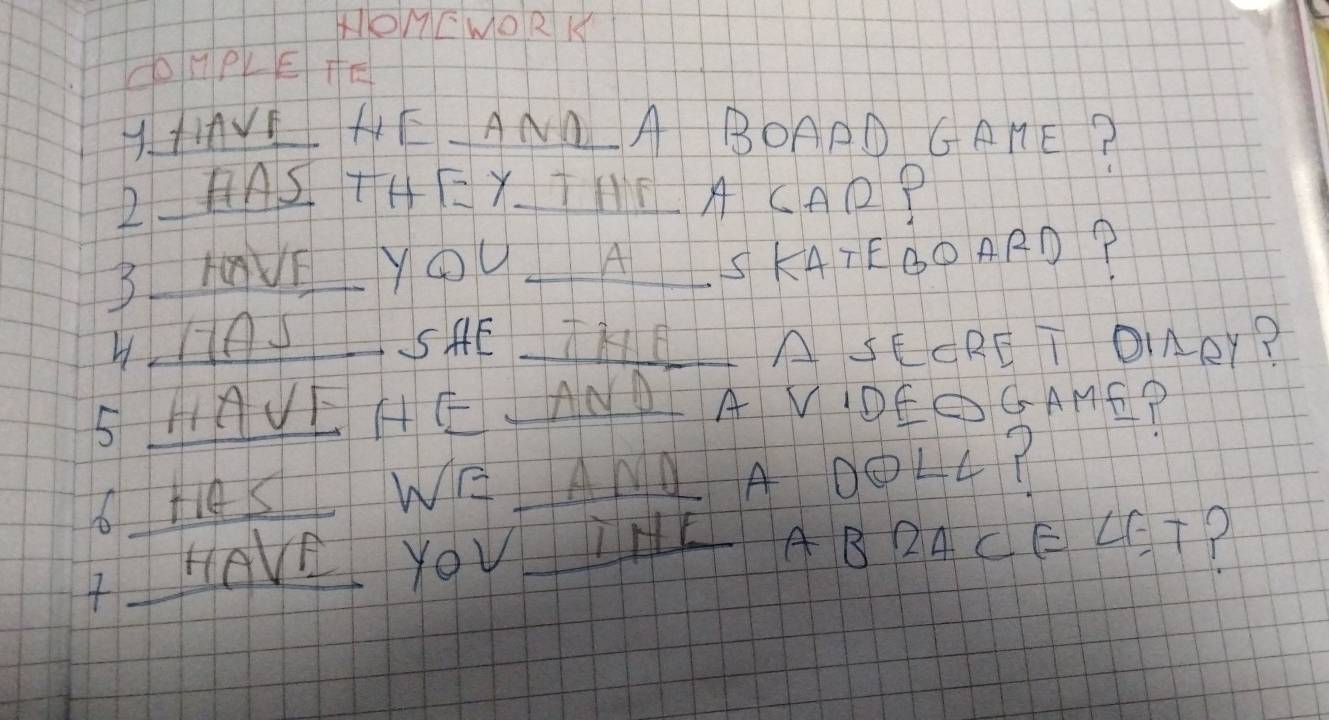 HOMEWORK
COMPLETE
1 HAVE HE AND A BOARD GAME?
2 HAS THEY THE A CAR?
3 HAVE YOU A SKATEBOARD?
4 HAS SHE THE A SECRET DIARY?
5 HAVE HE AND A VIDEOGAME?
6 HAS WE AND A DOLL?
7 HAVE YOU THE A BRACELET?